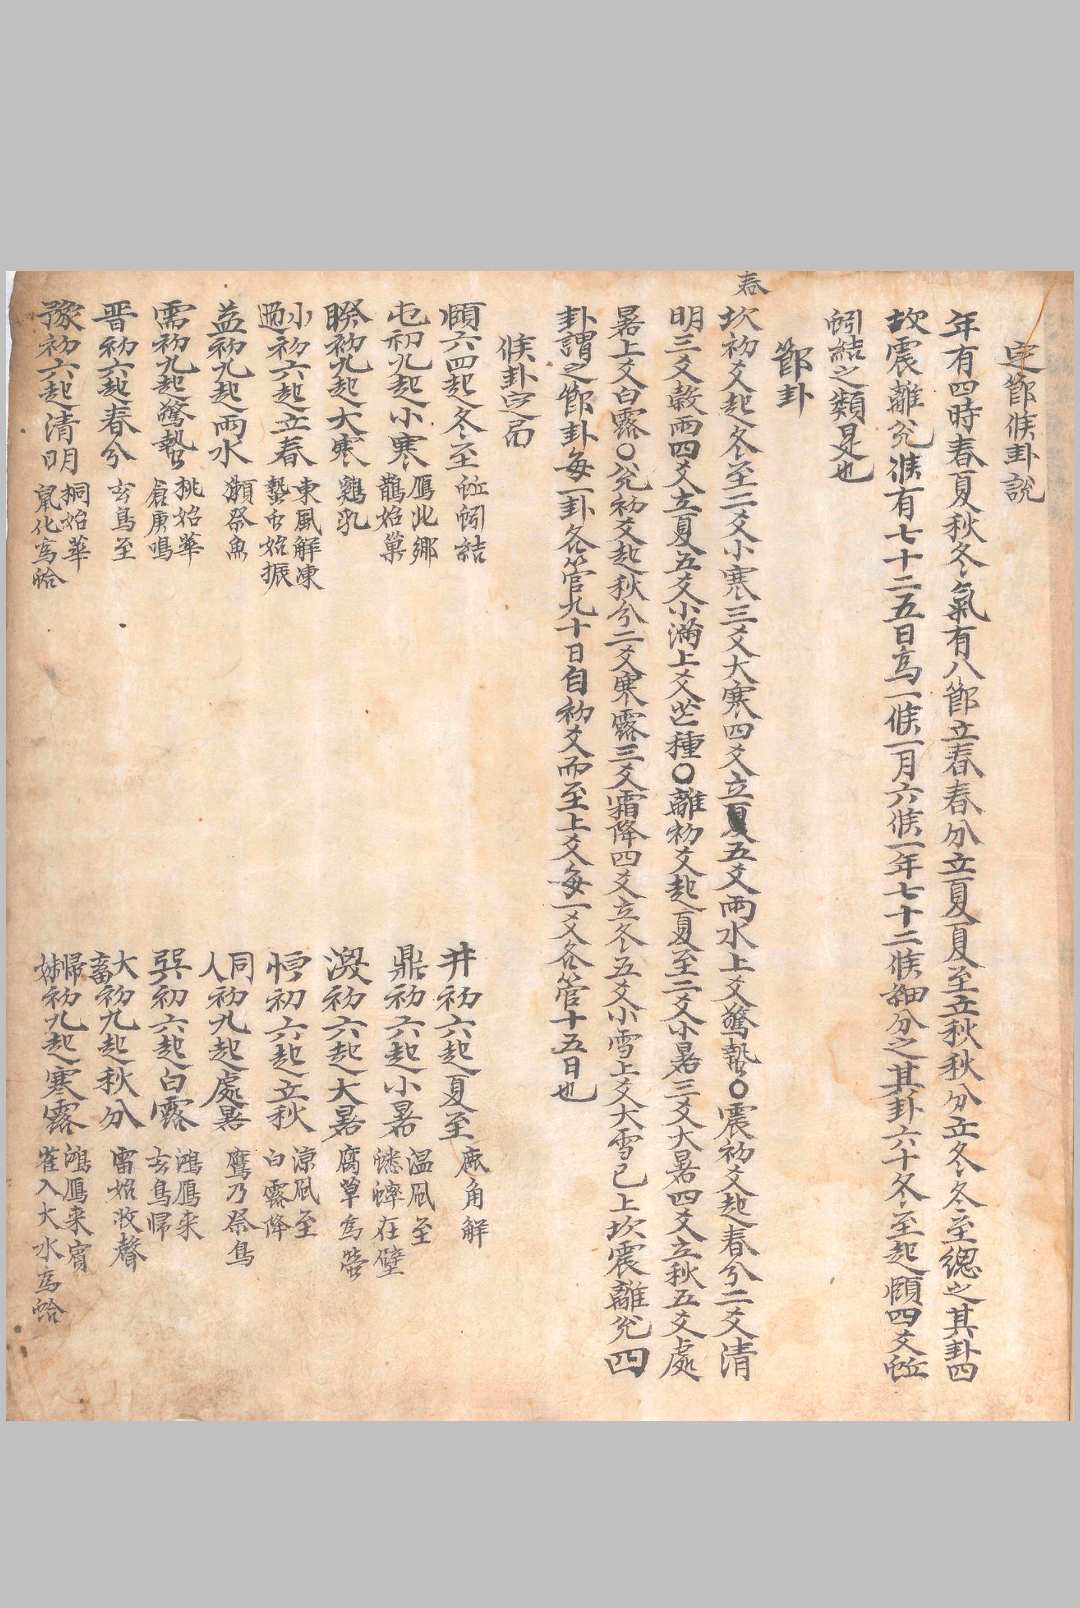 定節候卦說
年有四時春夏秋冬氣有八節立春春分立夏夏至立秋秋分立冬冬至總之其卦四
坎震離兊候有七十二五日為一候一月六候一年七十二候細分之其卦六十冬至起頤四爻蚯
蚓結之類是也
節卦
春
坎初爻起冬至二爻小寒三爻大寒四爻立夏五爻雨水上爻驚蟄○震初爻起春分二爻清
明三爻穀雨四爻立夏五爻小滿上爻芒種○離初爻起夏至二爻小暑三爻大暑四爻立秋五爻處
暑上爻白露○兊初爻起秋分二爻寒露三爻霜降四爻立冬五爻小雪上爻大雪已上坎震離兊四
卦謂之節卦每一卦各管九十日自初爻而至上爻每一爻各管十五日也
候卦定局
頤六四起冬至 蚯蚓結
井初六起夏至 鹿角解
屯初九起小寒 雁北鄉 鵲始巢
鼎初六起小暑 溫風至 蟋蟀在壁
睽初九起大寒 雞乳
渙初六起大暑 腐草為螢
小過初六起立春 東風解凍 蟄虫始振
恒初六起立秋 涼風至 白露降
益初九起雨水 獺祭魚
同人初九起處暑 鷹乃祭鳥
需初九起驚蟄 桃始華 倉庚鳴
巽初六起白露 鴻鴈来 玄鳥歸
晋初六起春分 玄鳥至
大畜初九起秋分 雷始收聲
豫初六起清明 桐始華 鼠化為鴽
歸妹初九起寒露 鴻鴈来賓 雀入大水為蛤